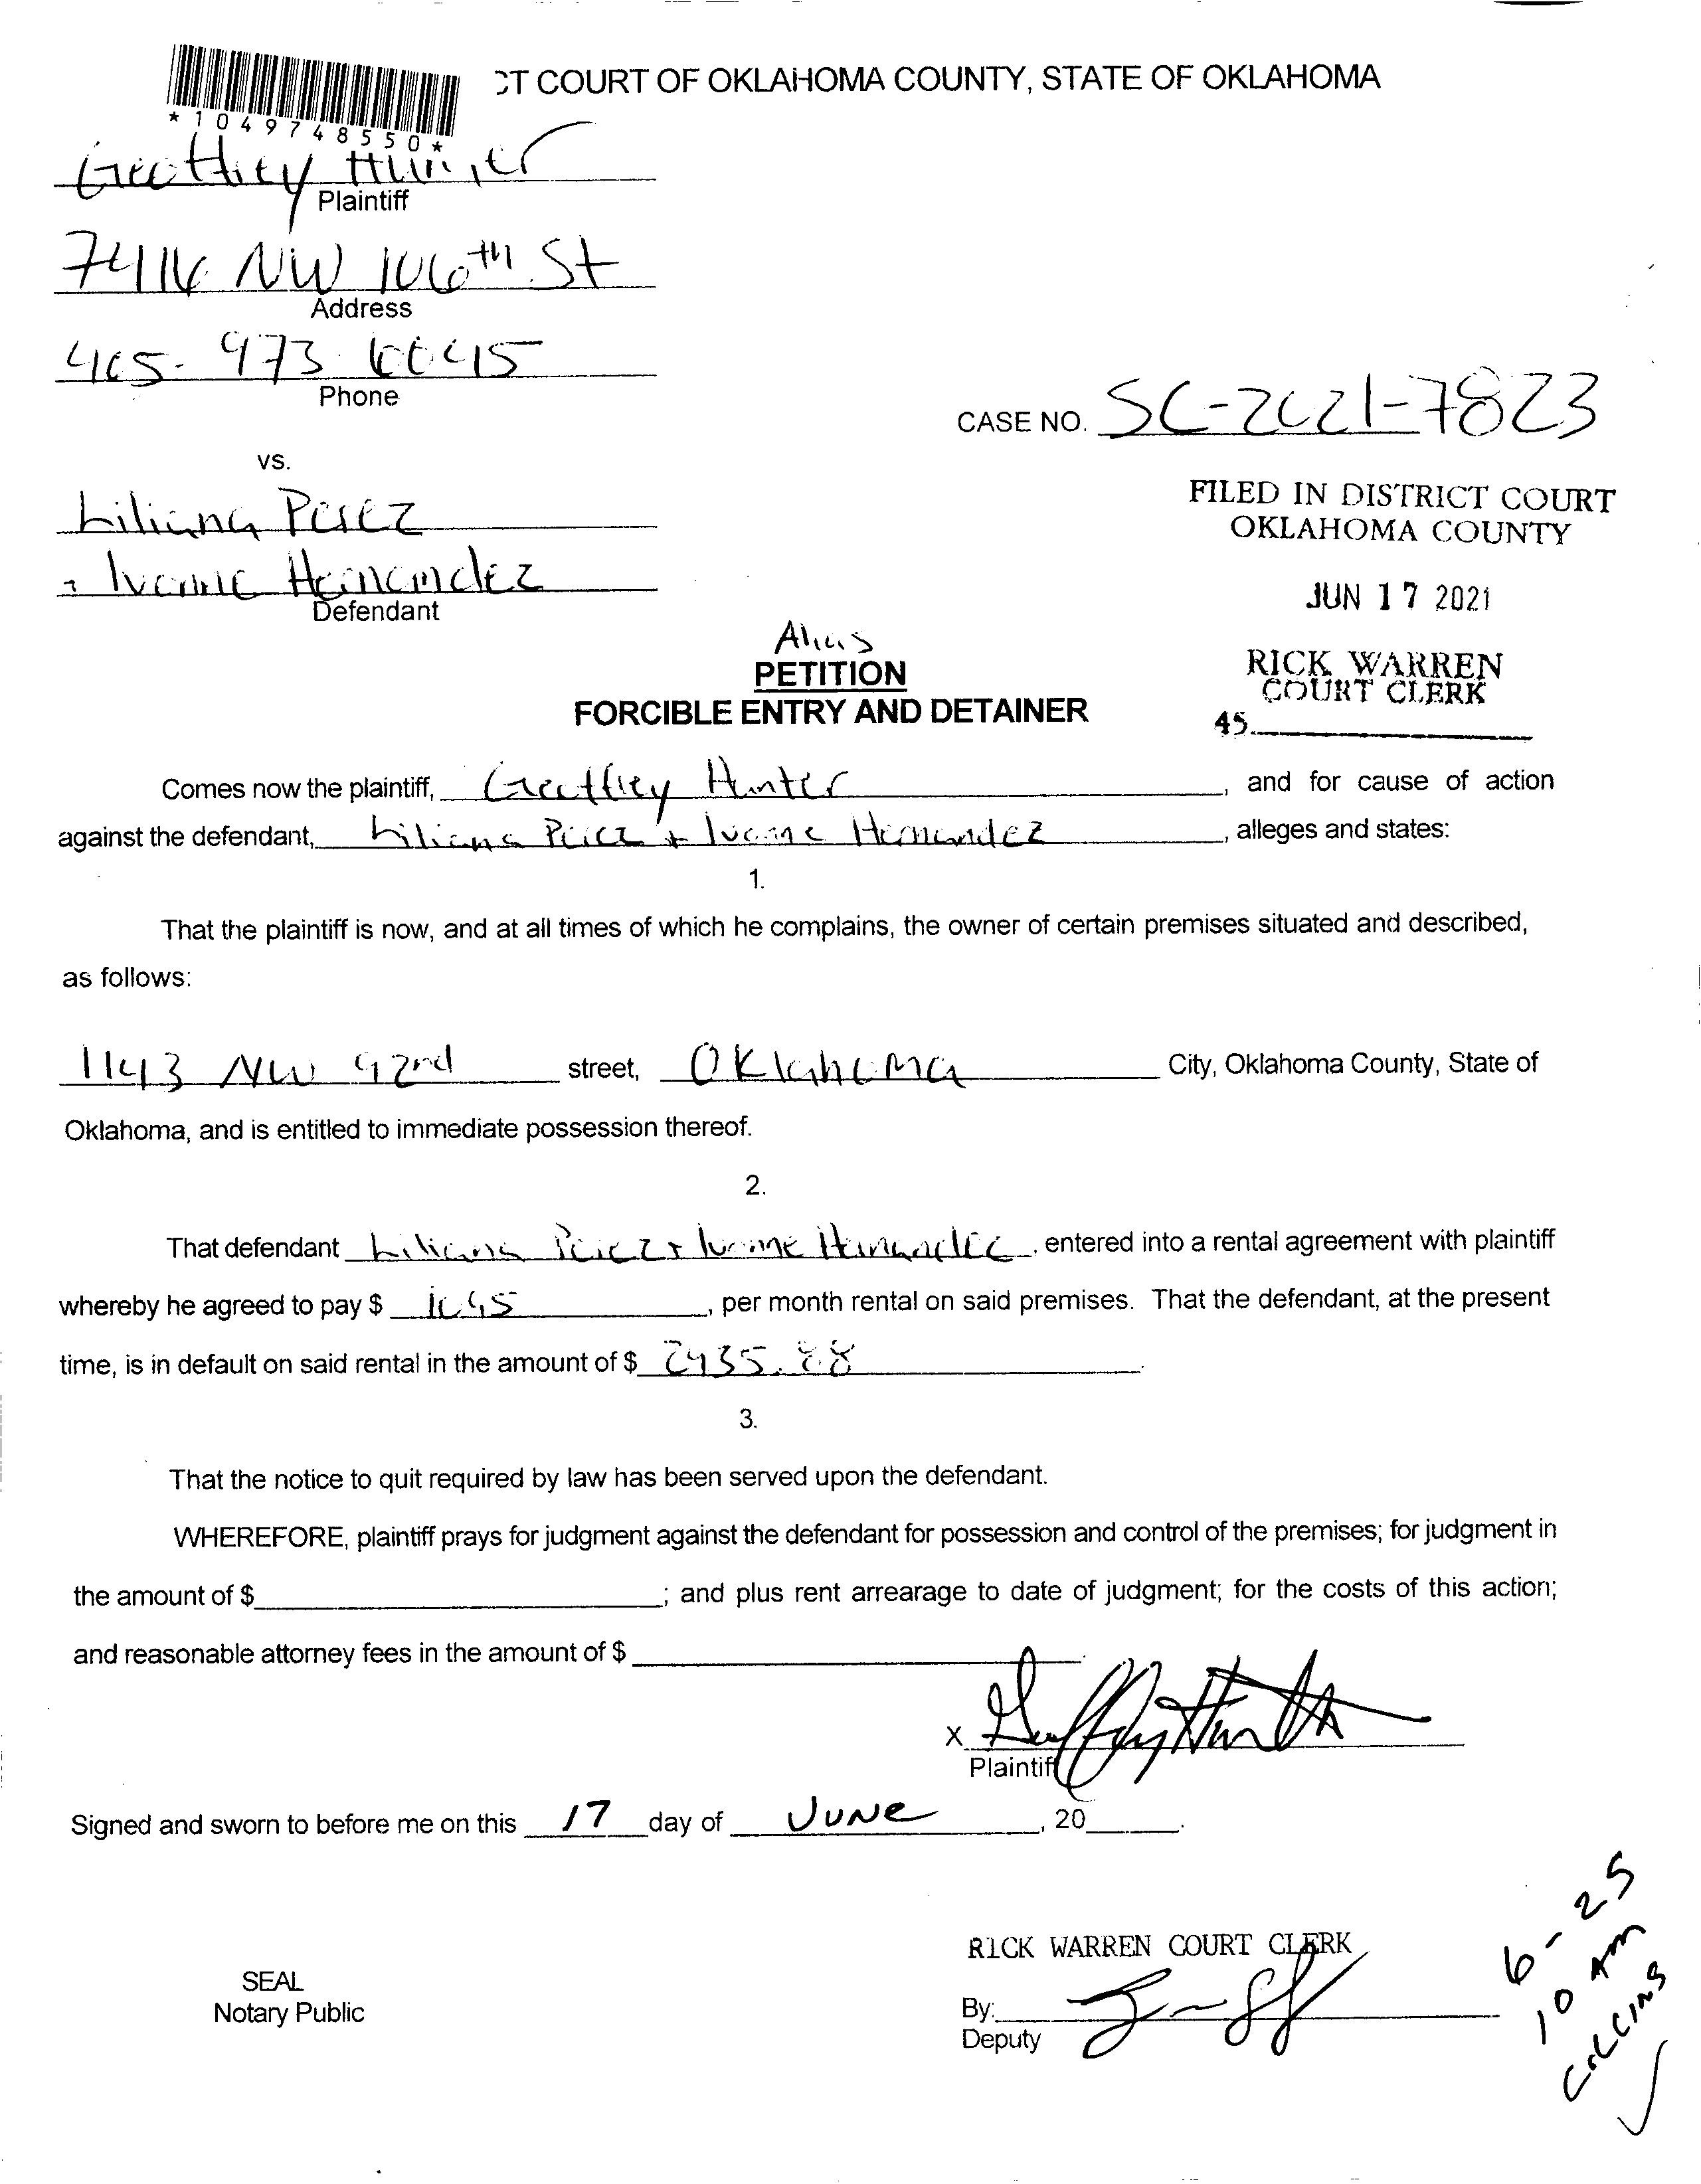 CT COURT OF OKLAHOMA COUNTY, STATE OF OKLAHOMA
*1049748550*
Geoffrey Hunter
Plaintiff
7416 NW 106th St
Address
405-973
Phone
CASE NO. SC-2021-7823
vs.
Liliana Perez
+ Hernandez
Defendant
FILED IN DISTRICT COURT
OKLAHOMA COUNTY
JUN 17 2021
RICK WARREN
COURT CLERK
45
Alias
PETITION
FORCIBLE ENTRY AND DETAINER
Comes now the plaintiff, Geoffrey Hunter, and for cause of action
against the defendant, Liliana Perez + Hernandez, alleges and states:
1.
That the plaintiff is now, and at all times of which he complains, the owner of certain premises situated and described,
as follows:
1143 NW 92nd street, Oklahoma City, Oklahoma County, State of
Oklahoma, and is entitled to immediate possession thereof.
2.
That defendant Liliana Perez + Hernandez, entered into a rental agreement with plaintiff
whereby he agreed to pay $, per month rental on said premises. That the defendant, at the present
time, is in default on said rental in the amount of $ 2935.88.
3.
That the notice to quit required by law has been served upon the defendant.
WHEREFORE, plaintiff prays for judgment against the defendant for possession and control of the premises; for judgment in
the amount of $; and plus rent arrearage to date of judgment; for the costs of this action;
and reasonable attorney fees in the amount of $
X Geoffrey Hunter
Plaintiff
Signed and sworn to before me on this 17 day of JUNE, 20.
RICK WARREN COURT CLERK
SEAL
Notary Public
By:
Deputy
6-25
10 AM
COLLINS